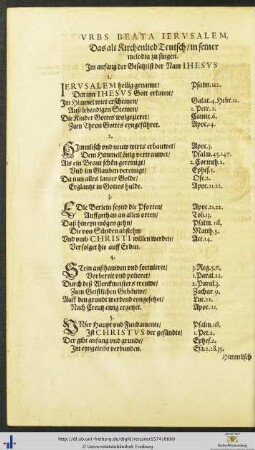 VRBS BEATA IERVSALEM,
Das alt Kirchenlied Teutsch / in seiner
melodia zu singen.
Im anfang der Gesetz ist der Nam IHESVS
1.
IERVSALEM heilig genannt /
Psalm.122.
Darinn IHESVS Gott erkannt /
Im Himmel wirt erscheinen /
Galat.4. Hebr.12.
Auß lebendigen Steinen /
1. Petr.2.
Die Kinder Gottes wolgezieret /
Cantic.6.
Zum Thron Gottes eyngeführet.
Apoc.14.
2.
Himmlisch und neuw wirts erbauwet /
Apoc.3.
Dem Himmelkönig vertrauwet /
Psalm.45.147.
Als ein Braut schön gereinigt
2.Corinth.
Und im Glauben vereinigt /
Ephes.5.
Da nun alles lauter Golde /
Ose.2.
Erglantzt in Gottes hulde.
Apoc.21.22.
3.
Die Berlein seynd die Pforten /
Apoc.21.22.
Auffgethan an allen orten /
Tob.13.
Daß hineyn mögen gehn
Psalm.118.
Die von Sünden abstehn /
Matth.5.
Und umb CHRISTI willen werden /
Act.14.
Verfolget hie auff Erden.
4.
Stein außhauwen und formieret /
3.Reg.5.7.
Vor bereit und polieret /
1.Paral.22.
Durch diß Werckmeisters treuwe /
2.Paral.3.
Zum Geistlichen Gebäuwe /
Zachar.9.
Auff den grundt werden eyngesetzet /
Luc.22.
Nach Creutz ewig ergetzet.
Apoc.21.
5.
Unser Haupt und Fundamente /
Psalm.118.
Ist CHRISTVS der gesändte /
1.Pet.2.
Der gibt anfang und grunde /
Ephes.2.
Im eyngeleibt verbunden.
Himmlisch
http://dl.ub.uni-freiburg.de/diglit/reissner1574/0060
© Universitätsbibliothek Freiburg